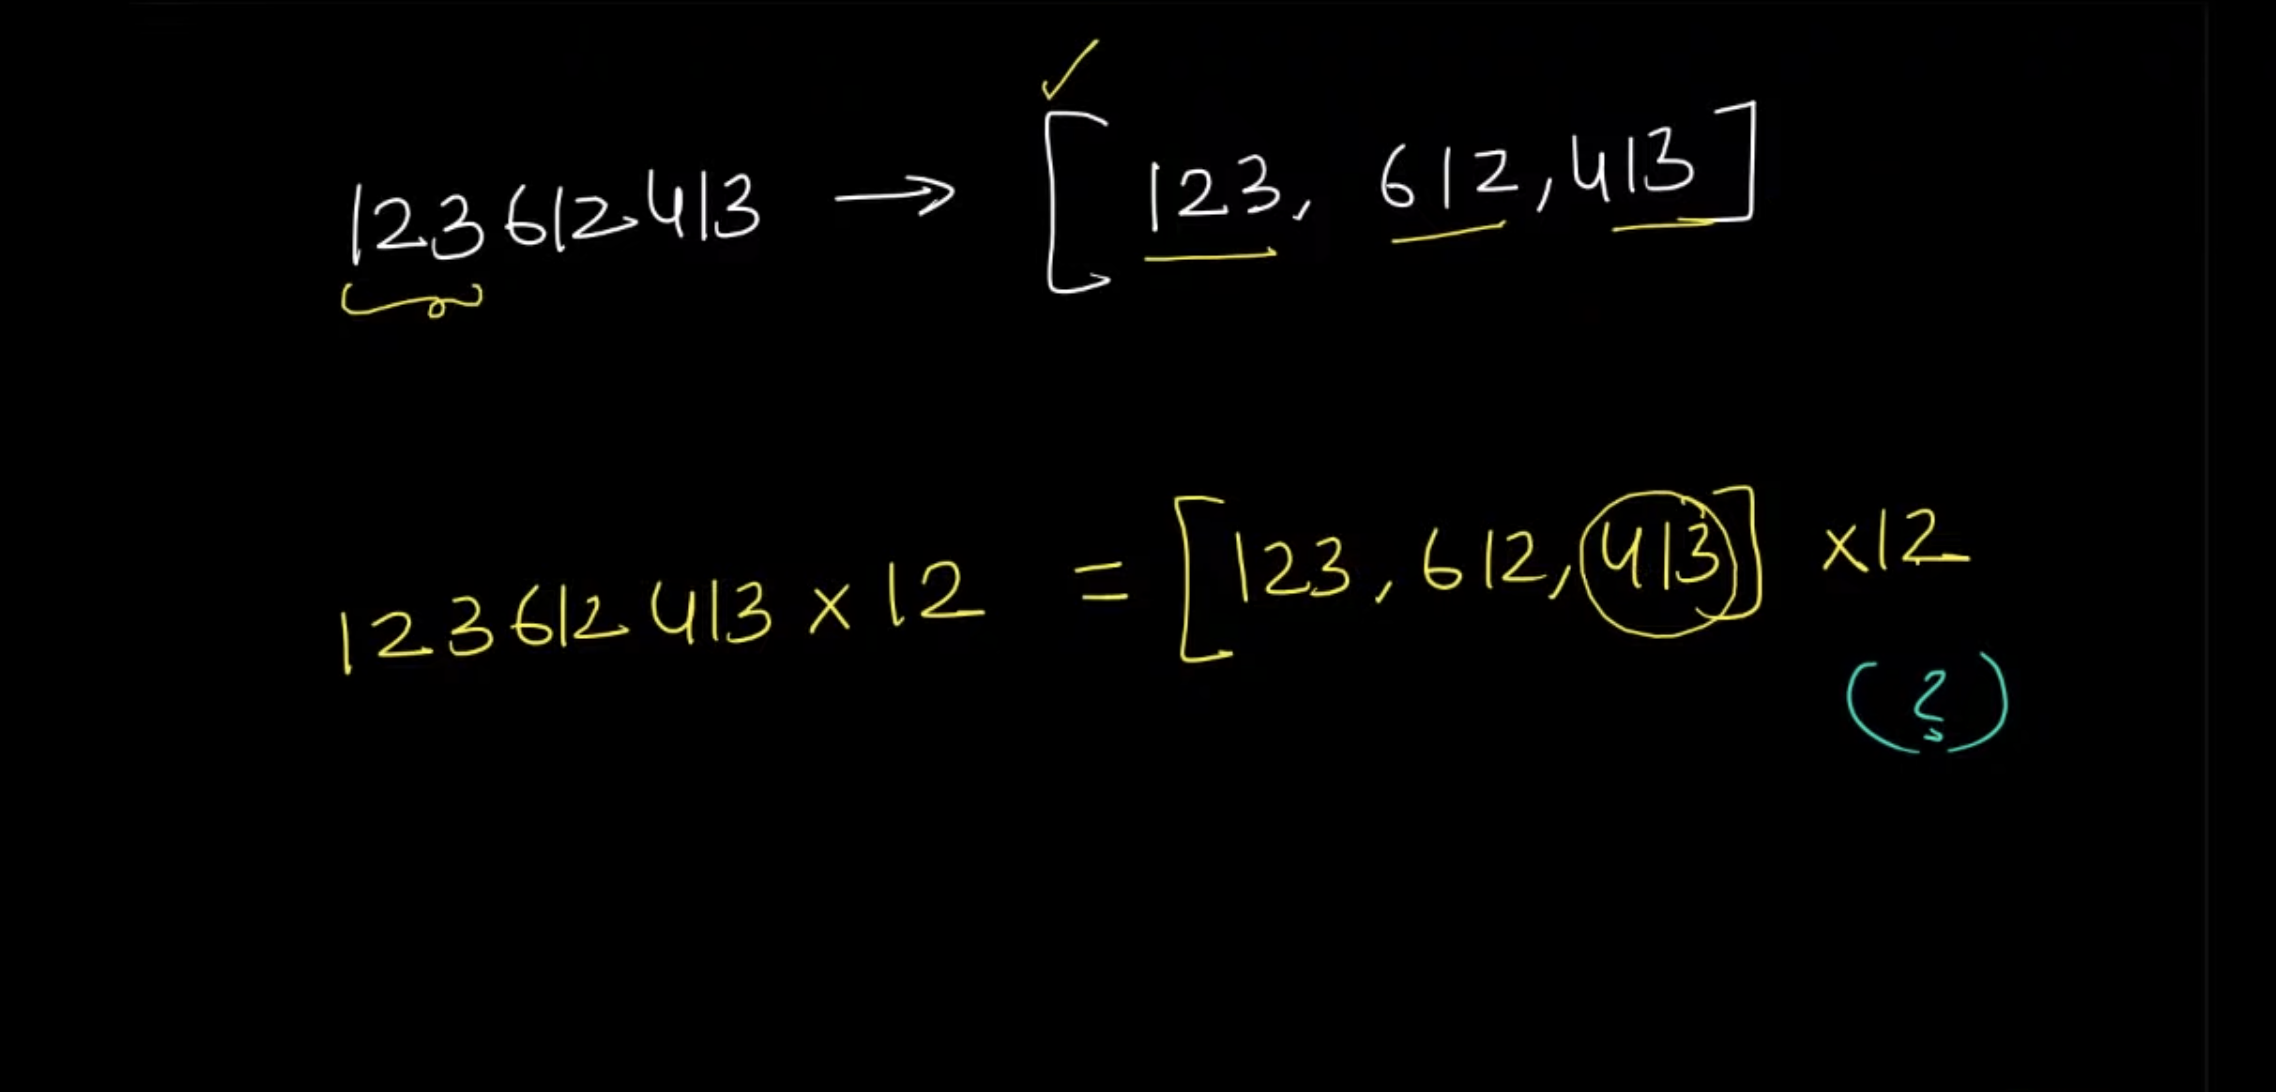 123612413 → [123, 612, 413]
123612413 × 12 = [123, 612, 413] × 12
(?)